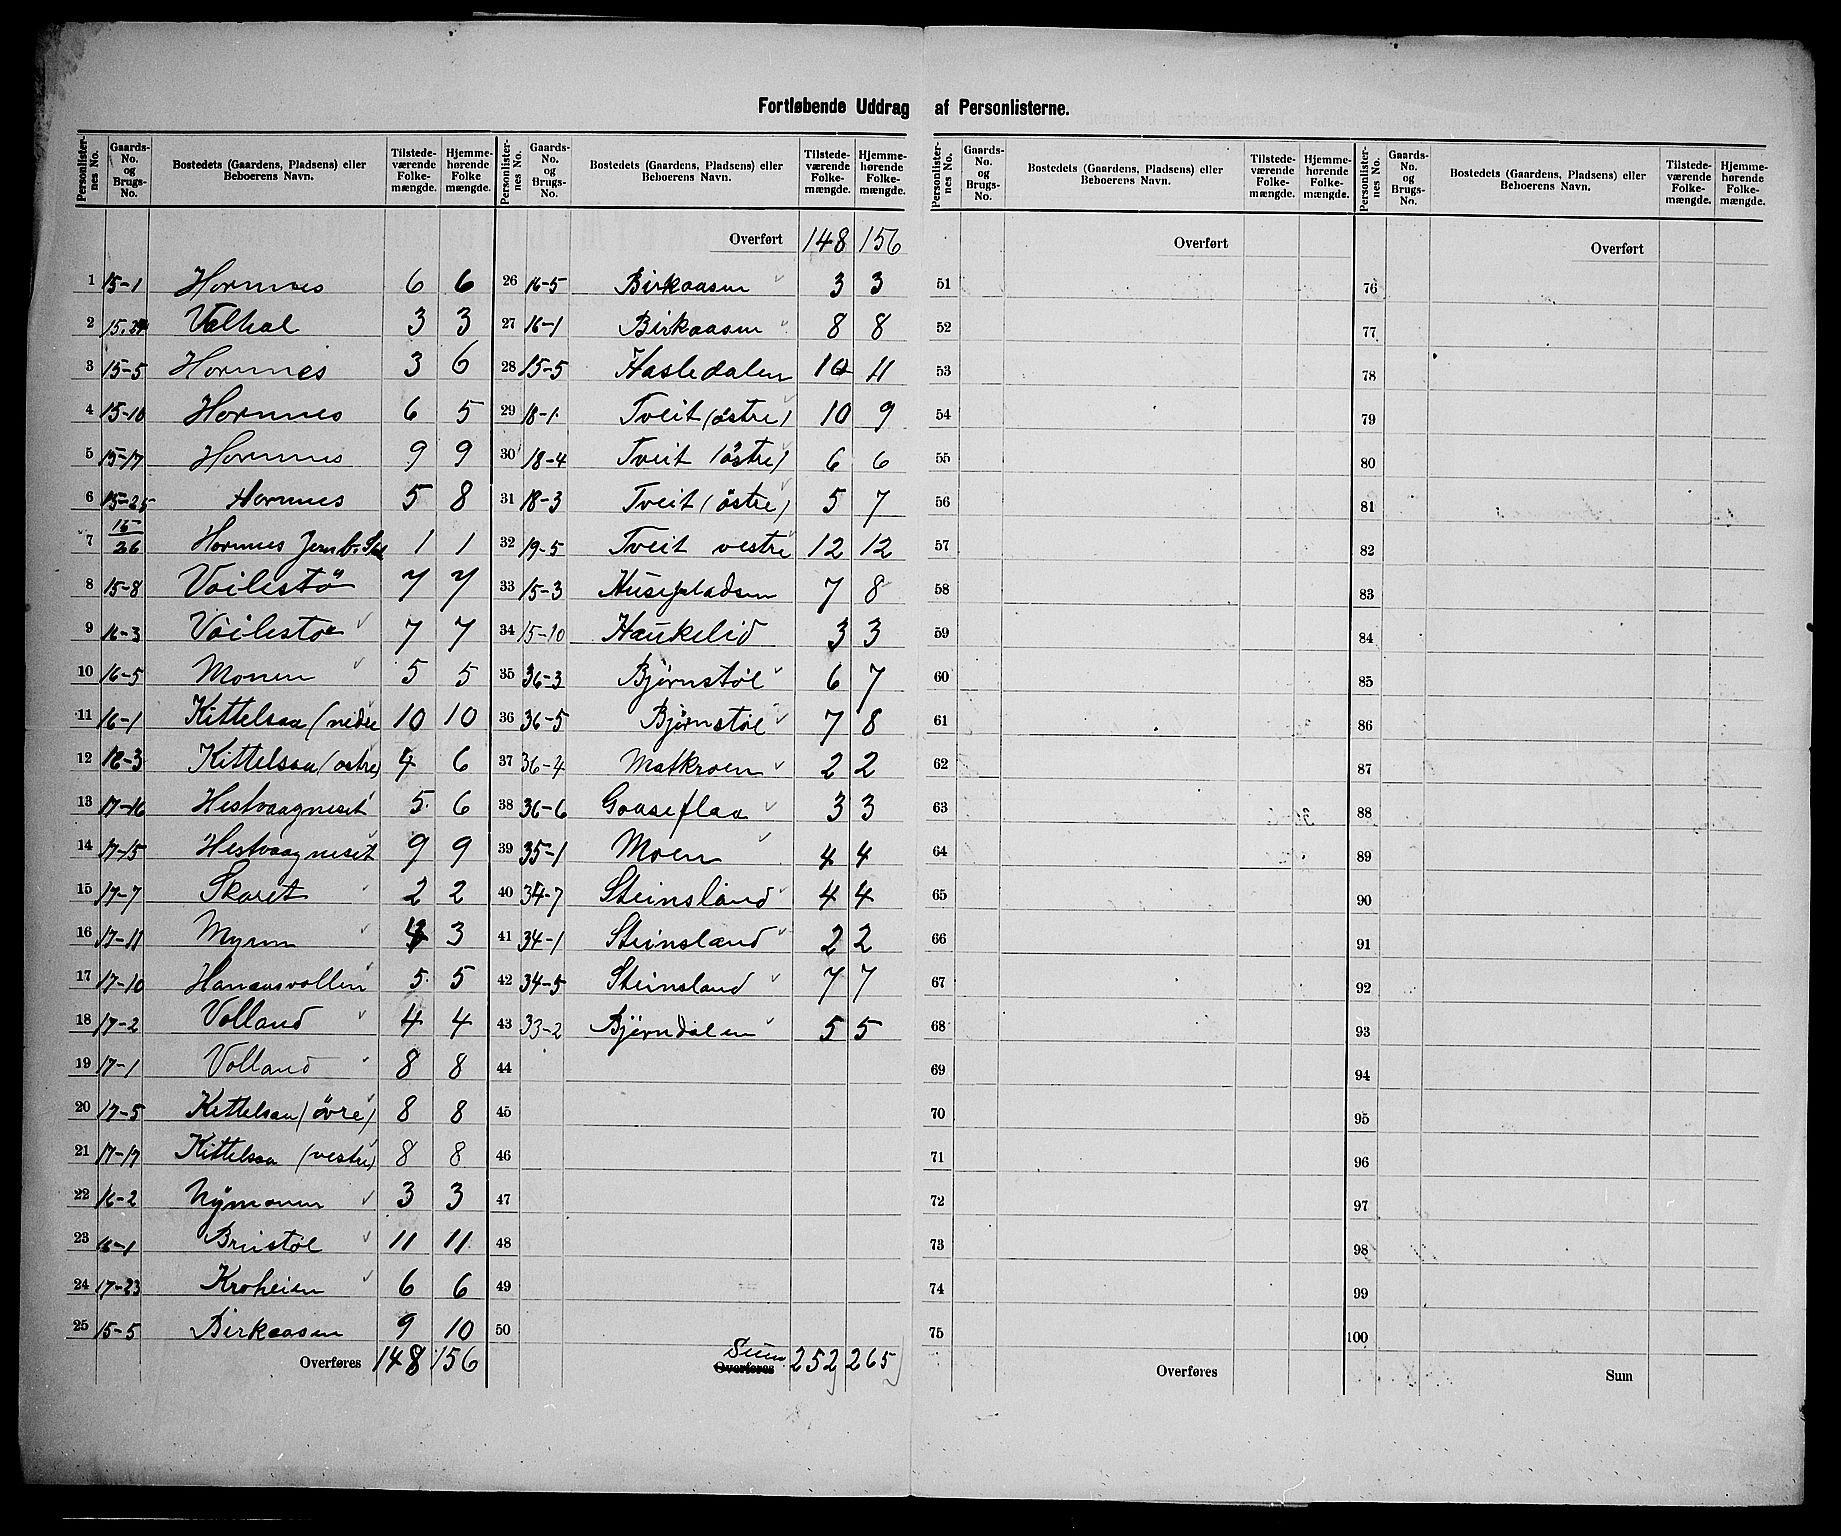 Fortløbende Uddrag af Personlisterne.
Personlister-nes No. Gaards-No. og Brugs-No. Bostedets (Gaardens, Pladsens) eller Beboerens Navn. Tilstede-værende Folke-mængde. Hjemme-hørende Folke mængde.
1 15-1 Hornnes 6 6
2 15.24 Valhal 3 3
3 15-5 Hornnes 3 6
4 15-10 Hornnes 6 5
5 15-17 Hornnes 9 9
6 15-25 Hornnes 5 8
7 15/26 Hornnes Jernb. 1 1
8 15-8 Voilestö 7 7
9 16-3 Voilestøe 7 7
10 16-5 Monen 5 5
11 16-1 Kittelsaa (nedre 10 10
12 16-3 Kittelsaa (østre) 4 6
13 17-16 Hestvaagneset 5 6
14 17-15 Hestvaagneset 9 9
15 17-7 Skaret 2 2
16 17-11 Myren 3
17 17-10 Hanaasvollen 5 5
18 17-2 Volland 4 4
19 17-1 Volland 8 8
20 17-5 Kittelsaa (övre) 8 8
21 17-17 Kittelsaa (vestre) 8 8
22 16-2 Nymonen 3 3
23 16-1 Brustøl 11 11
24 17-23 Kroheien 6 6
25 15-5 Birkaasen 9 10
Overføres 148 156
Personlister-nes No. Gaards-No. og Brugs-No. Bostedets (Gaardens, Pladsens) eller Beboerens Navn. Tilstede-værende Folke-mængde. Hjemme-hørende Folke-mængde.
Overført 148 156
26 16-5 Birkaasen 3 3
27 16-1 Birkaasen 8 8
28 15-5 Hasledalen 10 11
29 18-1. Tveit (östre) 10 9
30 18-4 Tveit (östre) 6 6
31 18-3 Tveit (östre) 5 7
32 19-5 Tveit vestre 12 12
33 15-3 Husepladsen 7 8
34 15-10 Haukelid 3 3
35 36-3 Bjørnstøl 6 7
36 36-5 Bjørnstøl 7 8
37 36-4 Matkroen 2 2
38 36-6 Gaaseflaa 3 3
39 35-1 Moen 4 4
40 34-7 Steinsland 4 4
41 34-1 Steinsland 2 2
42 34-5 Steinsland 7 7
43 33-2 Bjørndalen 5 5
44
45
46
47
48
49
50
Sum Overføres 252 265
Personlister-nes No. Gaards-No. og Brugs-No. Bostedets (Gaardens, Pladsens) eller Beboerens Navn. Tilstede-værende Folke-mængde. Hjemme-hørende Folke-mængde.
Overført
51
52
53
54
55
56
57
58
59
60
61
62
63
64
65
66
67
68
69
70
71
72
73
74
75
Overføres
Personlister-nes No. Gaards-No. og Brugs-No. Bostedets (Gaardens, Pladsens) eller Beboerens Navn. Tilstede-værende Folke-mængde. Hjemme-hørende Folke-mængde.
Overført
76
77
78
79
80
81
82
83
84
85
86
87
88
89
90
91
92
93
94
95
96
97
98
99
100
Sum